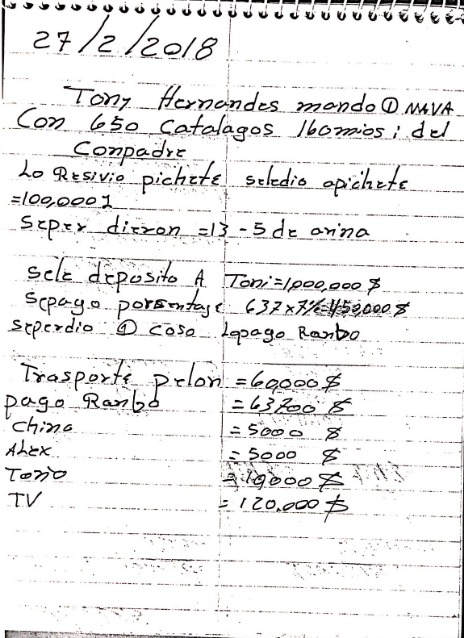 27/2/2018
Tony Hernandes mando ① NAVA
Con 650 Catalagos 160mios; del
Conpadre
Lo Resivio pichete seledio apichete
=100,000 $
Seper dieron =13 - 5 de arina
sele deposito A Toni=1,000,000 $
Sepago porsentage 637x7%= $
seperdio ① cosa Lopago Ranbo
Trasporte pelon =60,000 $
pago Ranbo =63700 $
china =5000 $
ALex =5000 $
= $
TV =120.000 $